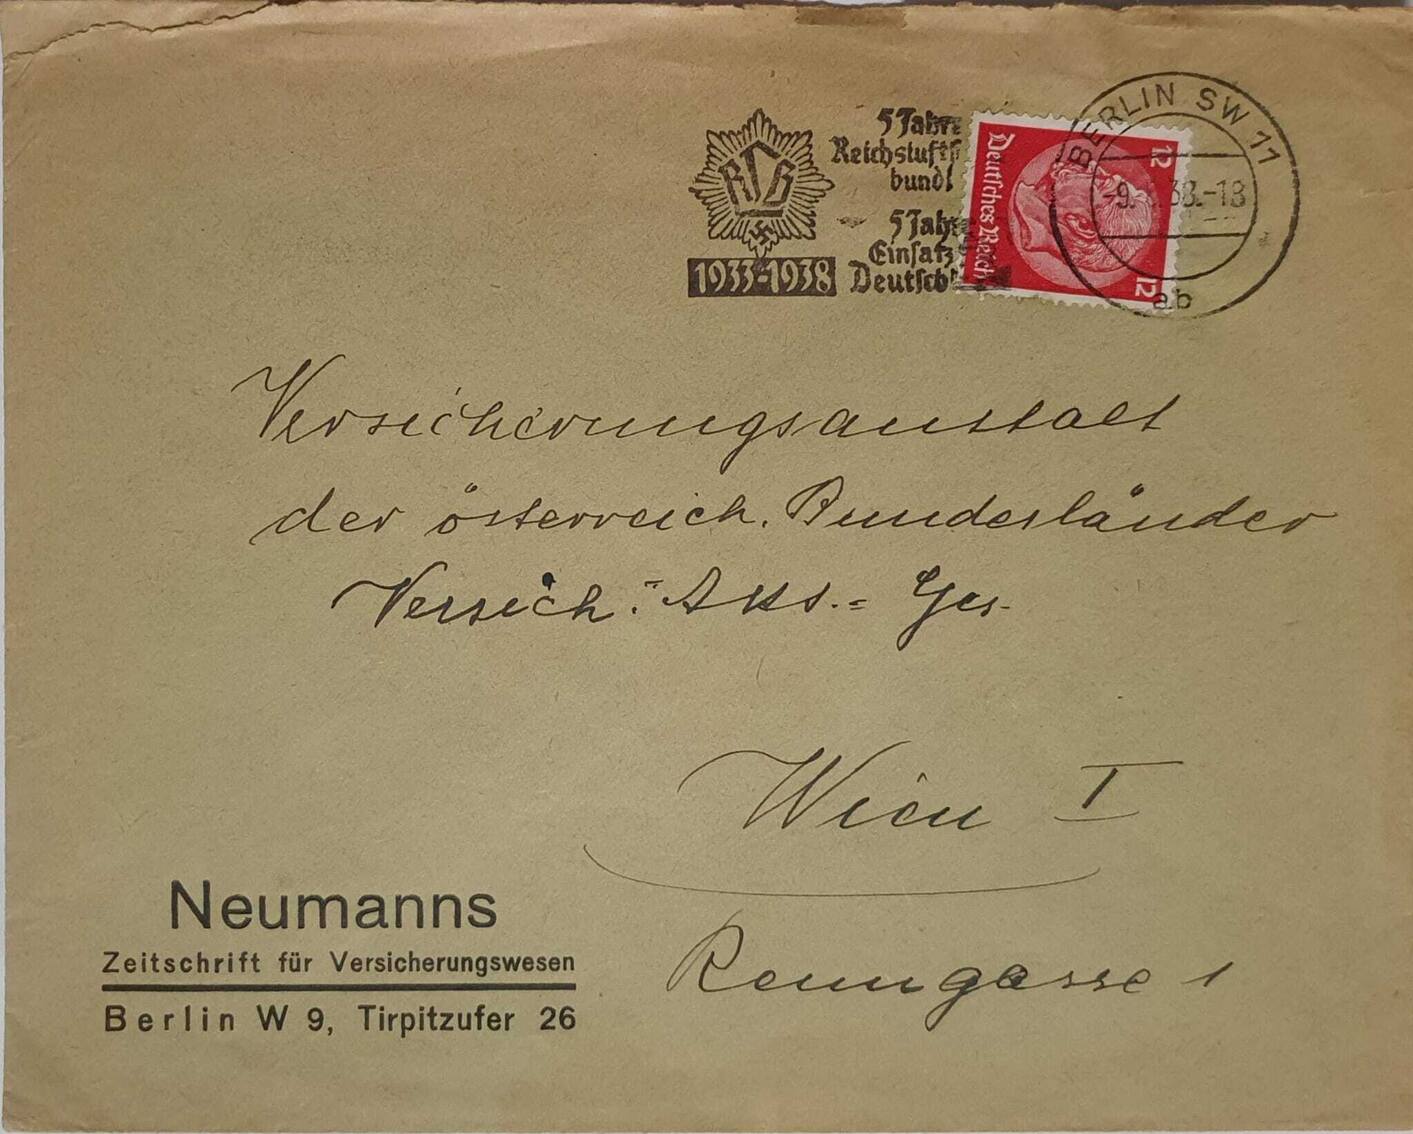 5 Jahre
Reichsluftsch
bund
5 Jahre
Einsatz
Deutschl
RLB
1933-1938
Deutsches Reich
12
12
BERLIN SW 11
38.-18
ab
Versicherungsanstalt
der österreich. Bundesländer
Versich.-Akt.-Ges.
Wien I
Renngasse 1
Neumanns
Zeitschrift für Versicherungswesen
Berlin W 9, Tirpitzufer 26